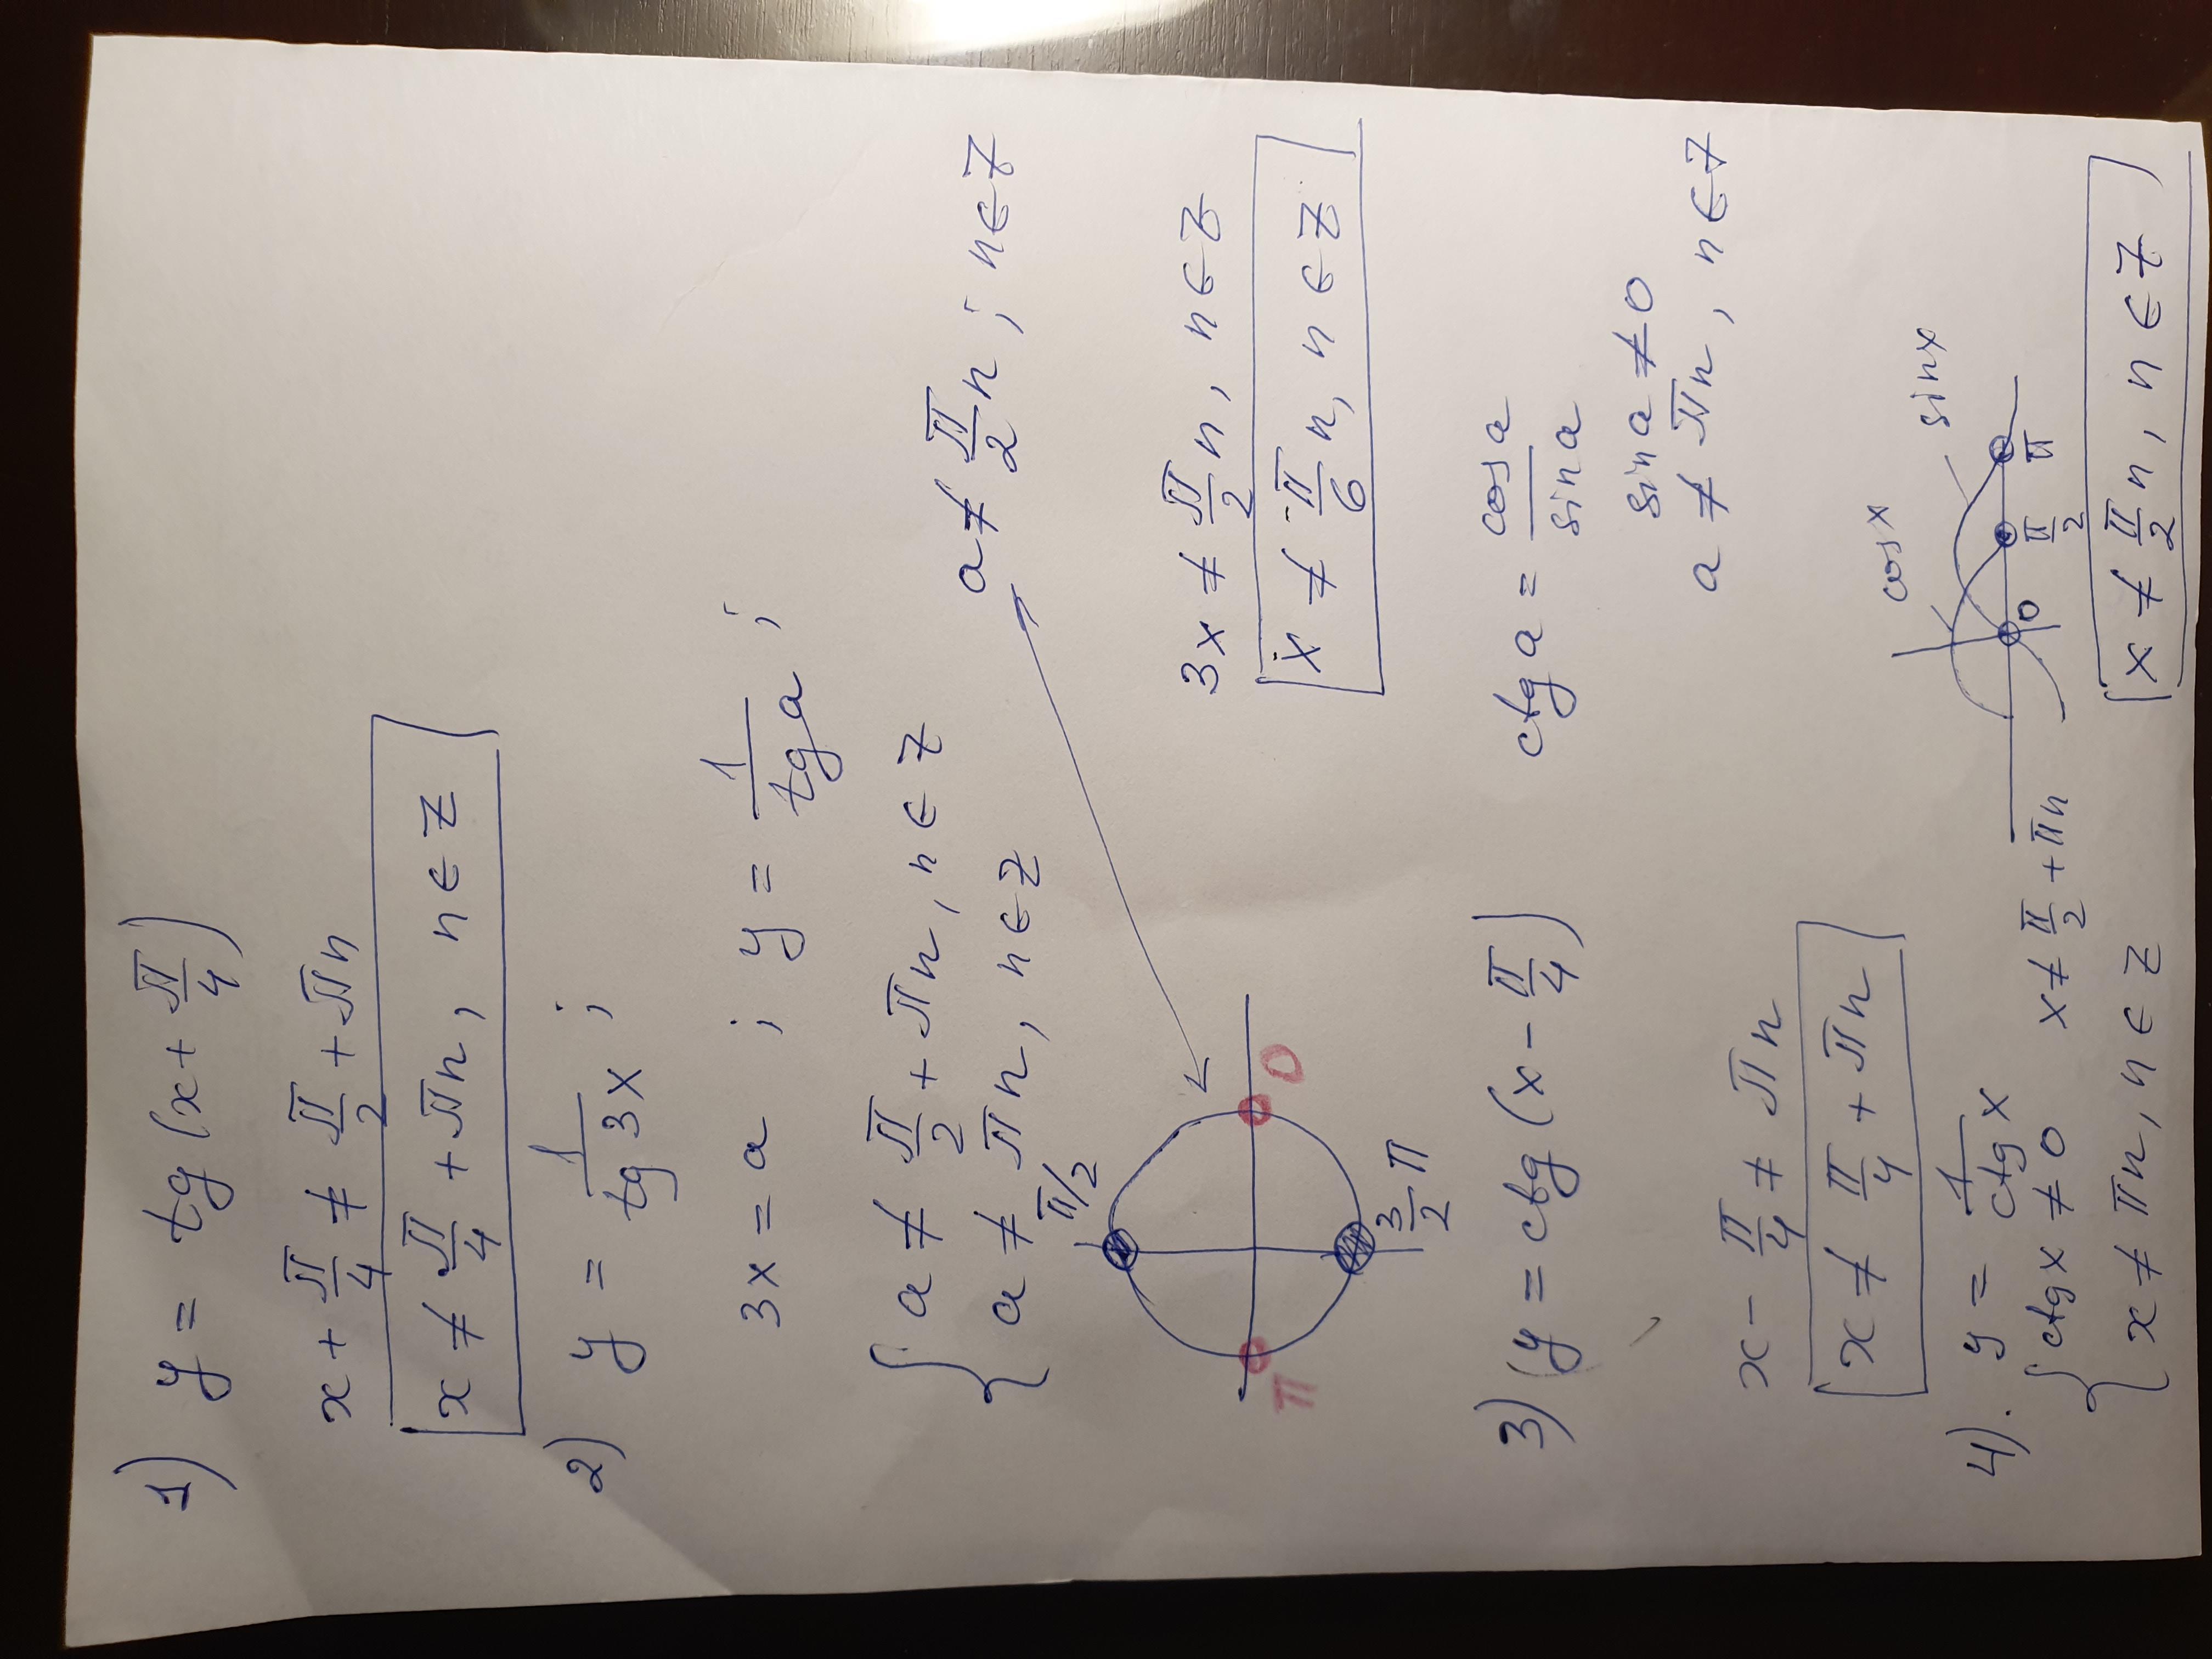 1) y = tg(x + π/4)
x + π/4 ≠ π/2 + πn
x ≠ π/4 + πn, n ∈ Z
2) y = 1/tg3x ;
3x = a ; y = 1/tga ;
a ≠ π/2 + πn, n ∈ Z
a ≠ πn, n ∈ Z
a ≠ π/2 n ; n ∈ Z
π/2
π 0
3/2 π
3x ≠ π/2 n, n ∈ Z
x ≠ π/6 n, n ∈ Z
3) y = ctg(x - π/4)
ctg a = cos a/sin a
sin a ≠ 0
a ≠ πn, n ∈ Z
x - π/4 ≠ πn
x ≠ π/4 + πn
4). y = 1/ctgx
ctgx ≠ 0 x ≠ π/2 + πn
x ≠ πn, n ∈ Z
cosx sinx
0 π/2 π
x ≠ π/2 n, n ∈ Z